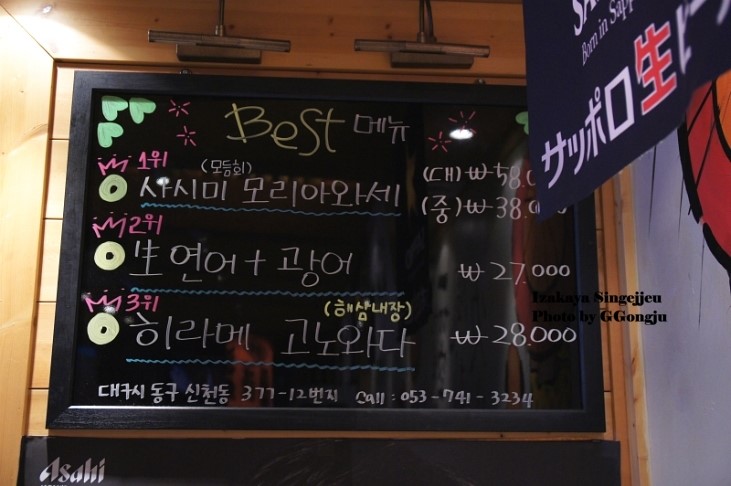 Best 메뉴
1위
(모듬회)
사시미 모리아와세 (대) ₩ 58.0
(중) ₩ 38.0
2위
生 연어 + 광어 ₩ 27.000
3위
(해삼내장)
히라메 고노와다 ₩ 28.000
대구시 동구 신천동 377-12번지 Call : 053-741-3234
Born in Sapp
サッポロ生ビー
Izakaya Singejjeu
Photo by GGongju
Asahi